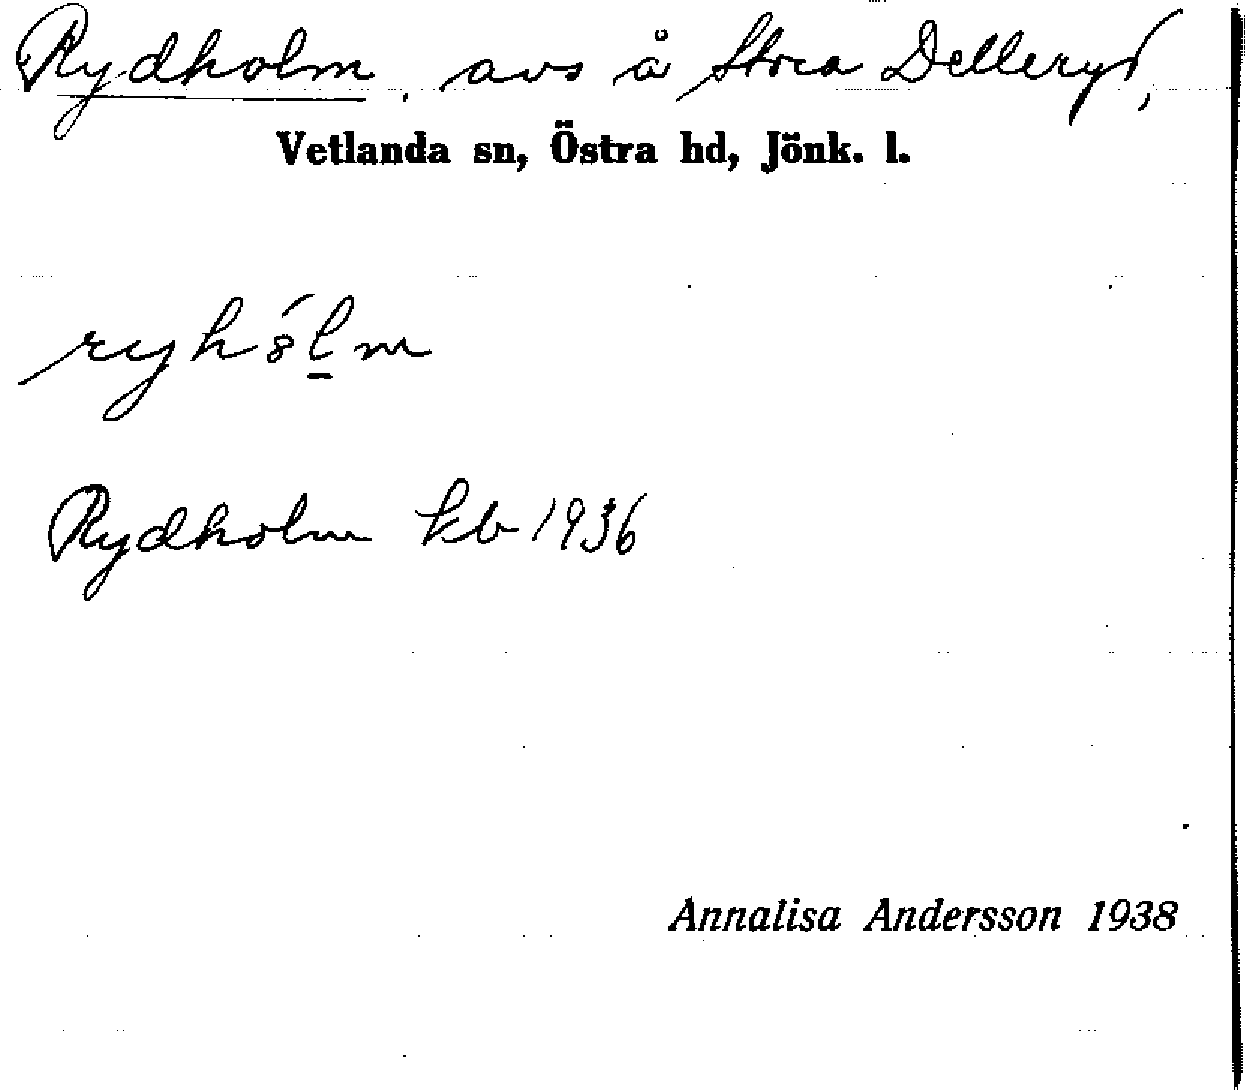 Rydholm, avs å Stora Delleryd,
Vetlanda sn, Östra hd, Jönk. l.
ryhólm
Rydholm kb 1936
Annalisa Andersson 1938